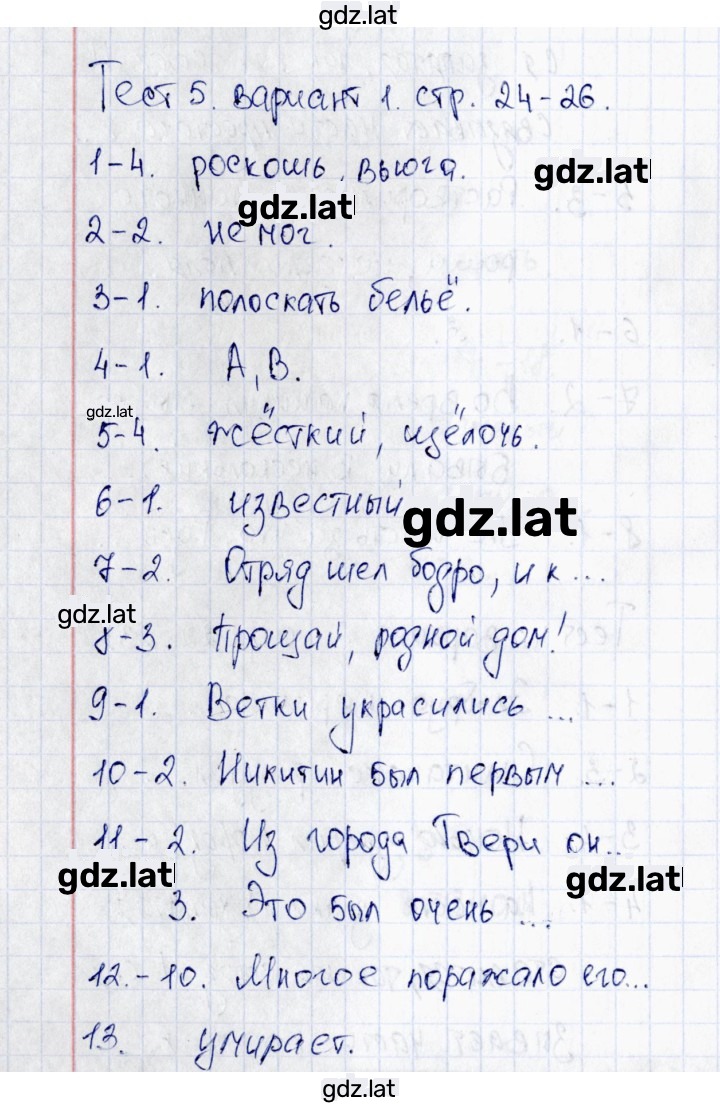 gdz.lat
Тест 5. вариант 1. стр. 24-26.
1-4. роскошь, вьюга.
gdz.lat
gdz.lat
2-2. не мог.
3-1. полоскать бельё.
4-1. А, В.
gdz.lat
5-4. жёсткий, щёлочь.
6-1. известный
gdz.lat
7-2. Отряд шел бодро, и к...
gdz.lat
8-3. Прощай, родной дом!
9-1. Ветки украсились ...
10-2. Никитин был первым ...
11-2. Из города Твери он..
gdz.lat
gdz.lat
3. Это был очень ...
12.-10. Многое поражало его...
13. умирает.
gdz.lat